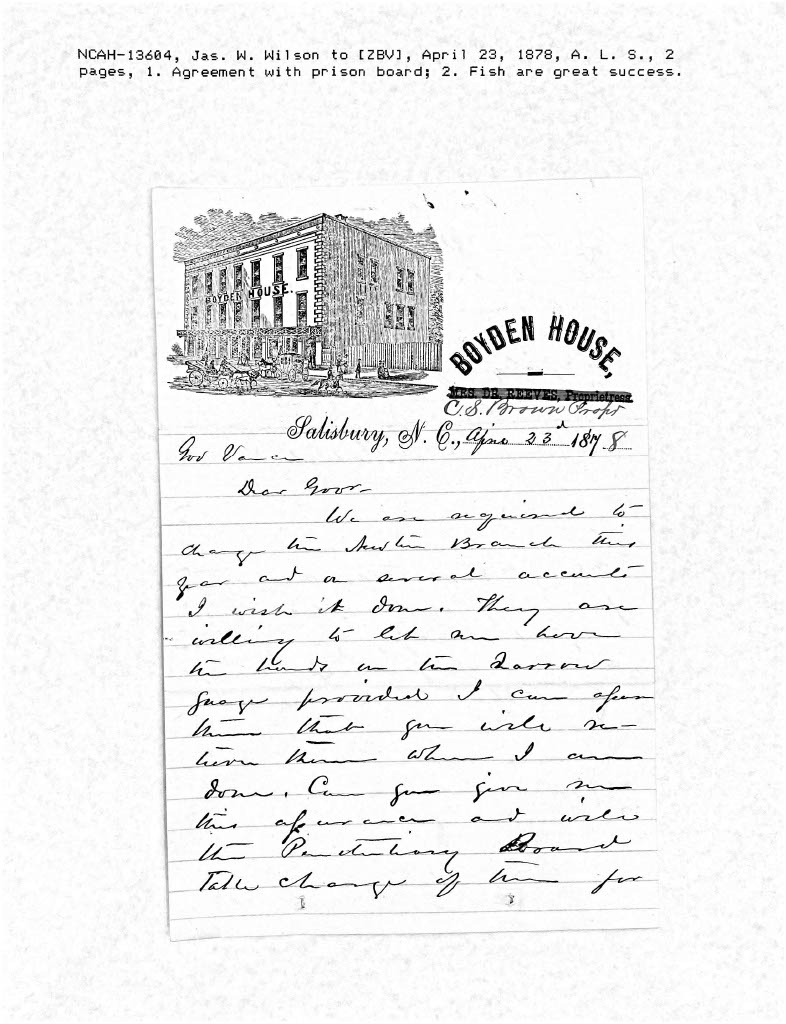 NCAH-13604, Jas. W. Wilson to [ZBV], April 23, 1878, A. L. S., 2
pages, 1. Agreement with prison board; 2. Fish are great success.
BOYDEN HOUSE.
BOYDEN HOUSE,
MRS. DR. REEVES, Proprietress.
C. S. Brown Propr
Salisbury, N. C., Apr 23d 1878
Gov Vance
Dear Govr
We are required to
change the Branch this
year and on several accounts
I wish it done. They are
willing to let me have
the hands on the Narrow
guage provided I can assure
them that you will re-
lieve them when I am
done. Can you give me
this assurance and will
the Penetentiary Board
Take charge of them for